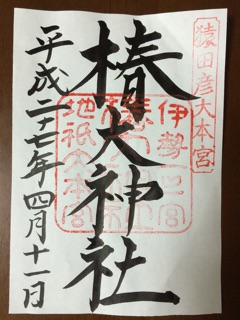 猿田彦大本宮
伊勢一之宮
椿大神社
地祇大本宮
平成二十七年四月十一日